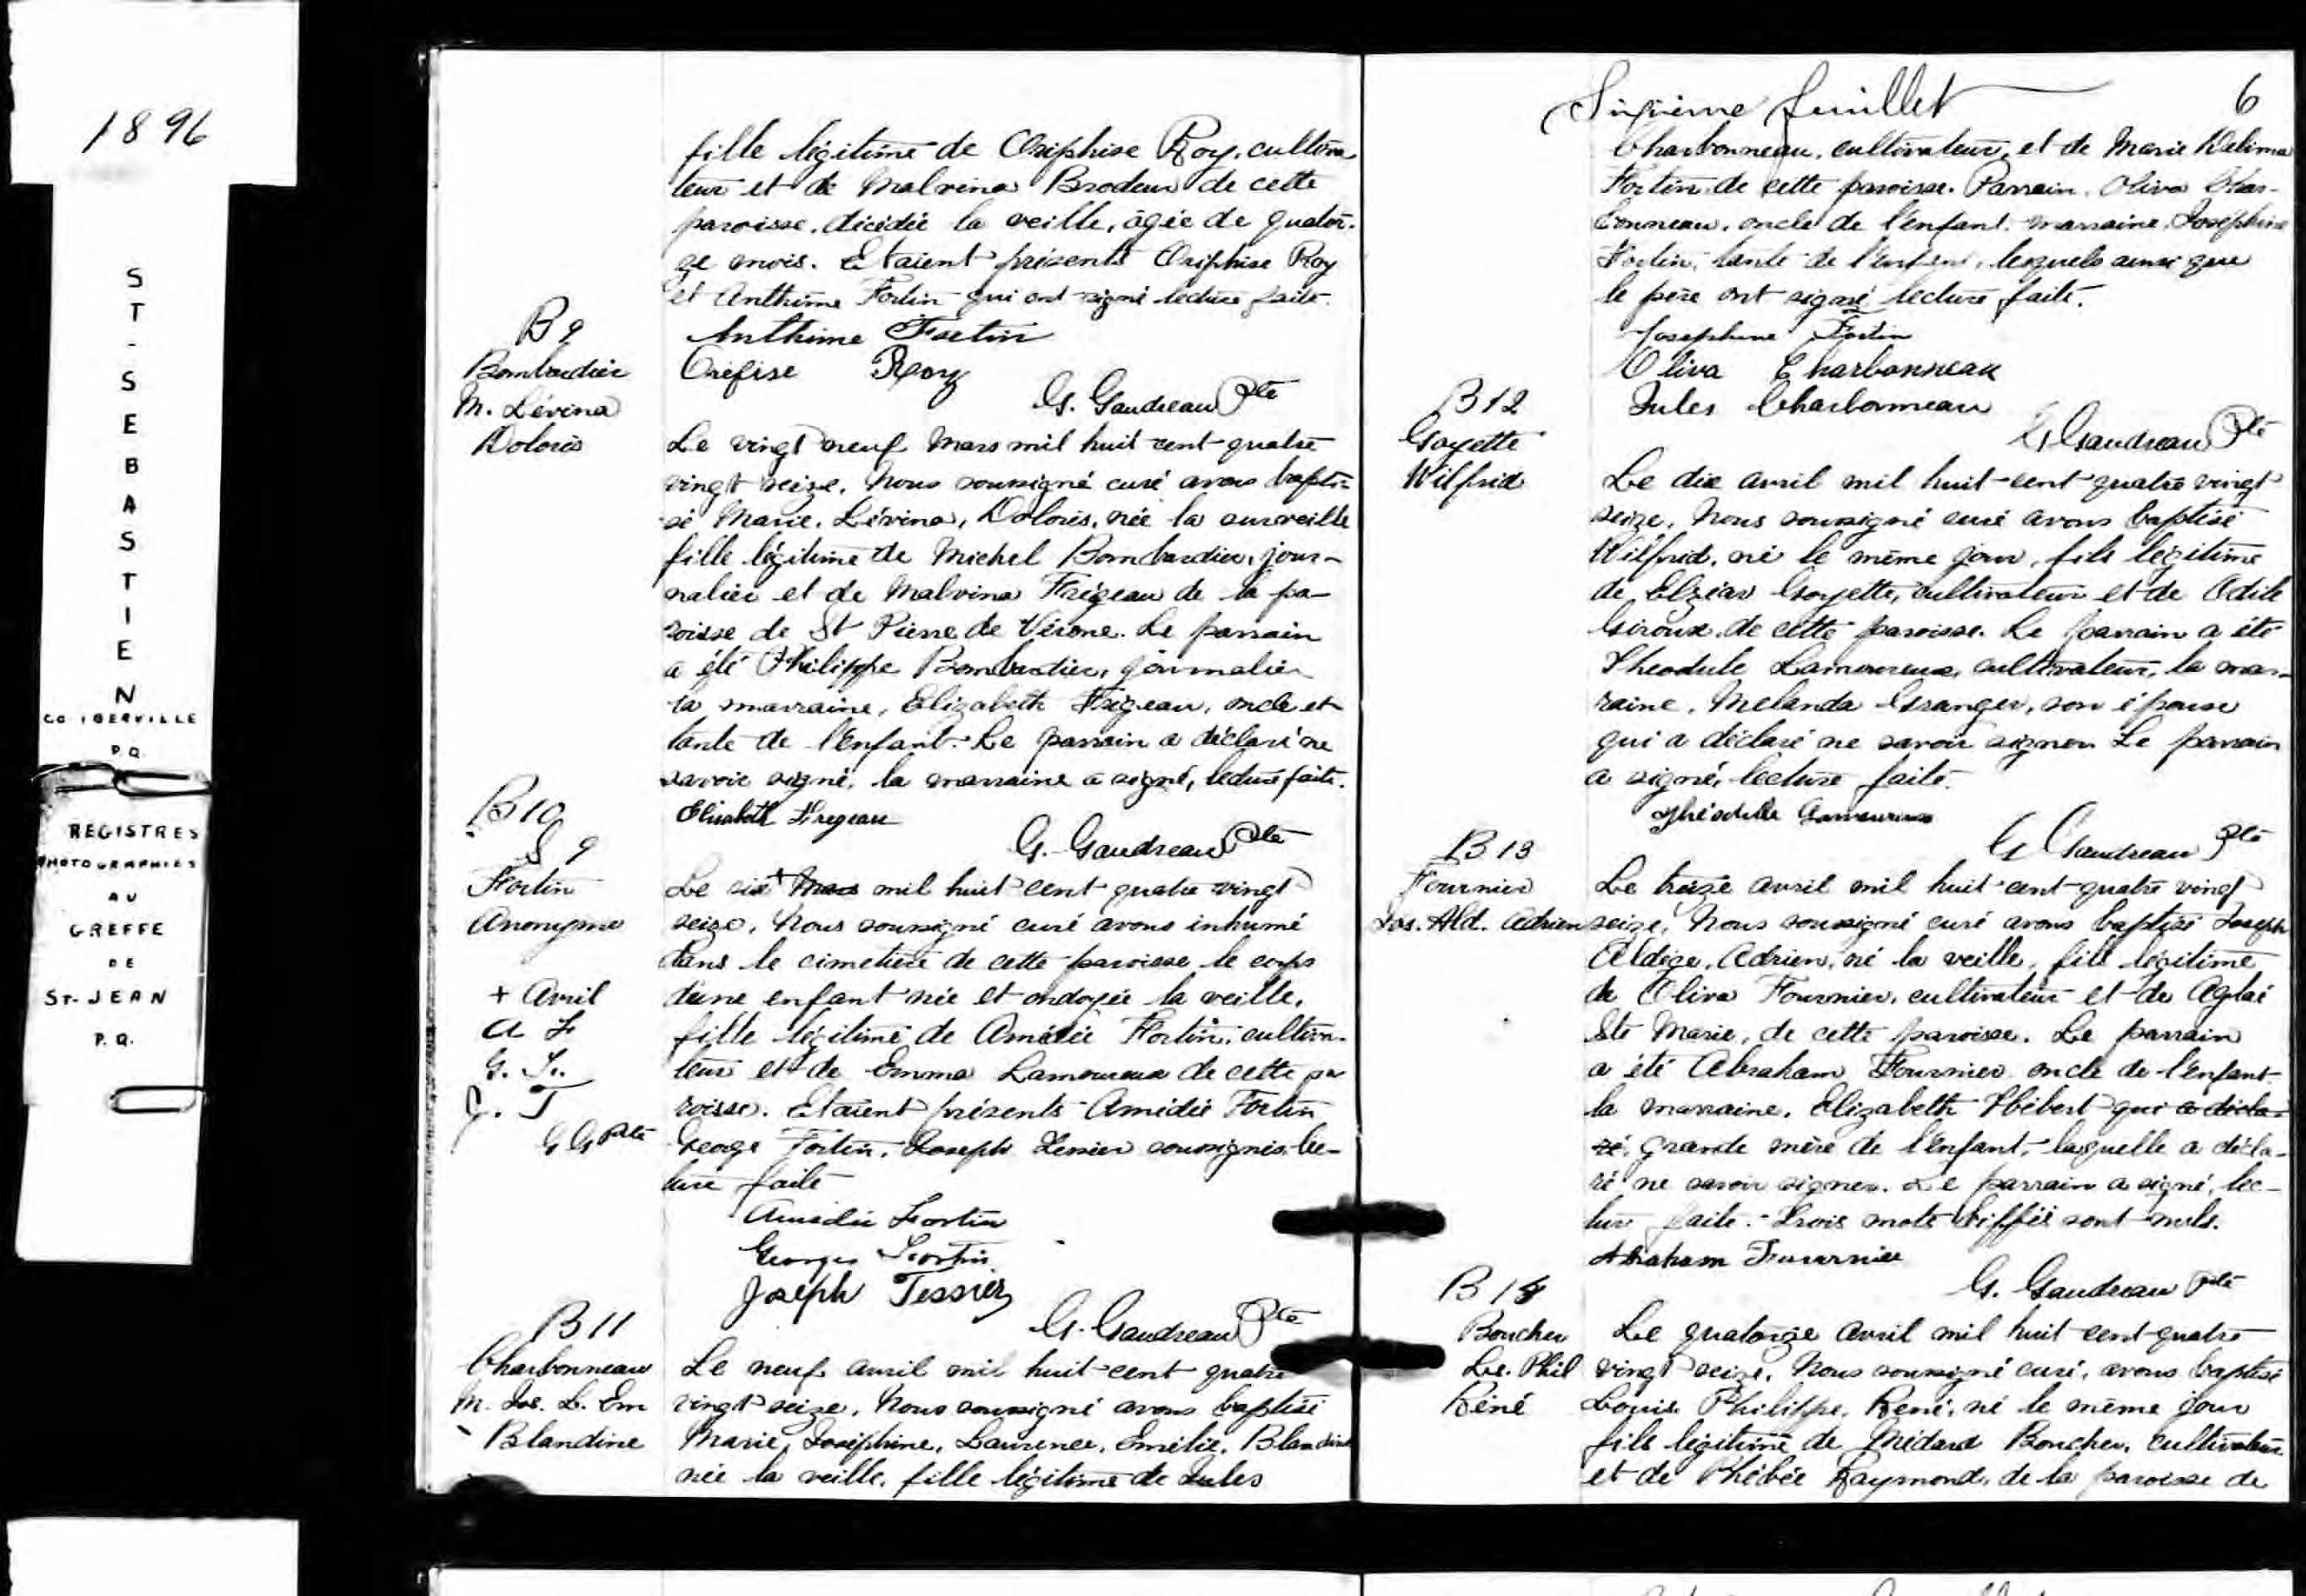 1896
ST-SEBASTIEN
CO IBERVILLE
P.Q.
REGISTRES
PHOTOGRAPHIES
AU
GREFFE
DE
ST-JEAN
P.Q.
fille légitime de Oriphise Roy, cultiva
teur et de Malvina Brodeur de cette
paroisse, décédée la veille, âgée de quator-
ze mois. Etaient présents Oriphise Roy
et Anthime Fortin qui ont signé lecture faite.
Anthime Fortin
Orifise Roy
G. Gaudreau Ptre
B 9
Bombardier
M. Lévina
Doloris
Le vingt neuf Mars mil huit cent quatre
vingt seize, Nous soussigné curé avons bapti-
sé Marie, Lévina, Doloris, née la surveille
fille légitime de Michel Bombardier, jour-
nalier et de Malvina Frégeau de la pa-
roisse de St Pierre de Vérone. Le parrain
a été Philippe Bombardier, journalier
la marraine, Elizabeth Frégeau, oncle et
tante de l'enfant. Le parrain a déclaré ne
savoir signé, la marraine a signé, lecture faite.
Elisabeth Fregeau
G. Gaudreau Ptre
B 10
S 9
Fortin
Anonyme
+ Avril
A F
G. F.
J. T
G G Ptre
Le six + Mars mil huit cent quatre vingt
seize, Nous soussigné curé avons inhumé
dans le cimetière de cette paroisse le corps
d'une enfant née et ondoyée la veille,
fille légitime de Amédée Fortin, cultiva-
teur et de Emma Lamoureux de cette pa
roisse. Etaient présents Amédée Fortin
George Fortin, Joseph Tessier soussignés lec-
ture faite
Amédée Fortin
Georges Fortin
Joseph Tessier
G. Gaudreau Ptre
B 11
Charbonneau
M. Jos. L. Em
Blandine
Le neuf avril mil huit cent quatre
vingt seize, Nous soussigné avons baptisé
Marie, Joséphine, Laurence, Emélie, Blandine
née la veille, fille légitime de Jules
Sixième feuillet 6
Charbonneau, cultivateur, et de Marie Délima
Fortin de cette paroisse. Parrain, Oliva Char-
bonneau, oncle de l'enfant, marraine, Joséphine
Fortin, tante de l'enfant, lesquels ainsi que
le père ont signé lecture faite.
Josephine Fortin
Oliva Charbonneau
Jules Charbonneau
G Gaudreau Ptre
B 12
Goyette
Wilfrid
Le dix avril mil huit cent quatre vingt
seize, Nous soussigné curé avons baptisé
Wilfrid, né le même jour, fils légitime
de Elzéar Goyette, cultivateur et de Odile
Giroux, de cette paroisse. Le parrain a été
Théodule Lamoureux, cultivateur, la mar-
raine, Melanda Granger, son épouse
qui a déclaré ne savoir signer Le parrain
a signé, lecture faite.
Théodule Lamoureux
G Gaudreau Ptre
B 13
Fournier
Jos. Ald. Adrien
Le treize avril mil huit cent quatre vingt
seize, Nous soussigné curé avons baptisé Joseph
Aldège, Adrien, né la veille, fils légitime
de Oliva Fournier, cultivateur et de Aglaé
Ste Marie, de cette paroisse. Le parrain
a été Abraham Fournier oncle de l'enfant
la marraine, Elizabeth Hébert qui a décla-
ré, grande mère de l'enfant, laquelle a décla-
ré ne savoir signer. Le parrain a signé, lec-
ture faite. Trois mots biffés sont nuls.
Abraham Fournier
G. Gaudreau Ptre
B 14
Boucher
Ls. Phil
Réné
Le quatorze avril mil huit cent quatre
vingt seize, Nous soussigné curé, avons baptisé
Louis, Philippe, René, né le même jour
fils légitime de Médard Boucher, cultivateur
et de Phébée Raymond, de la paroisse de